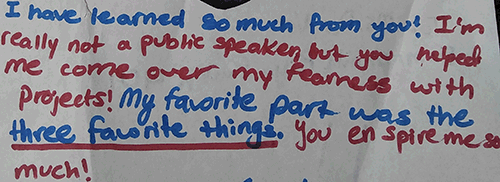 I have learned so much from you! I'm
really not a public speaker, but you helped
me come over my fearness with
projects! My favorite part was the
three favorite things. You en spire me so
much!